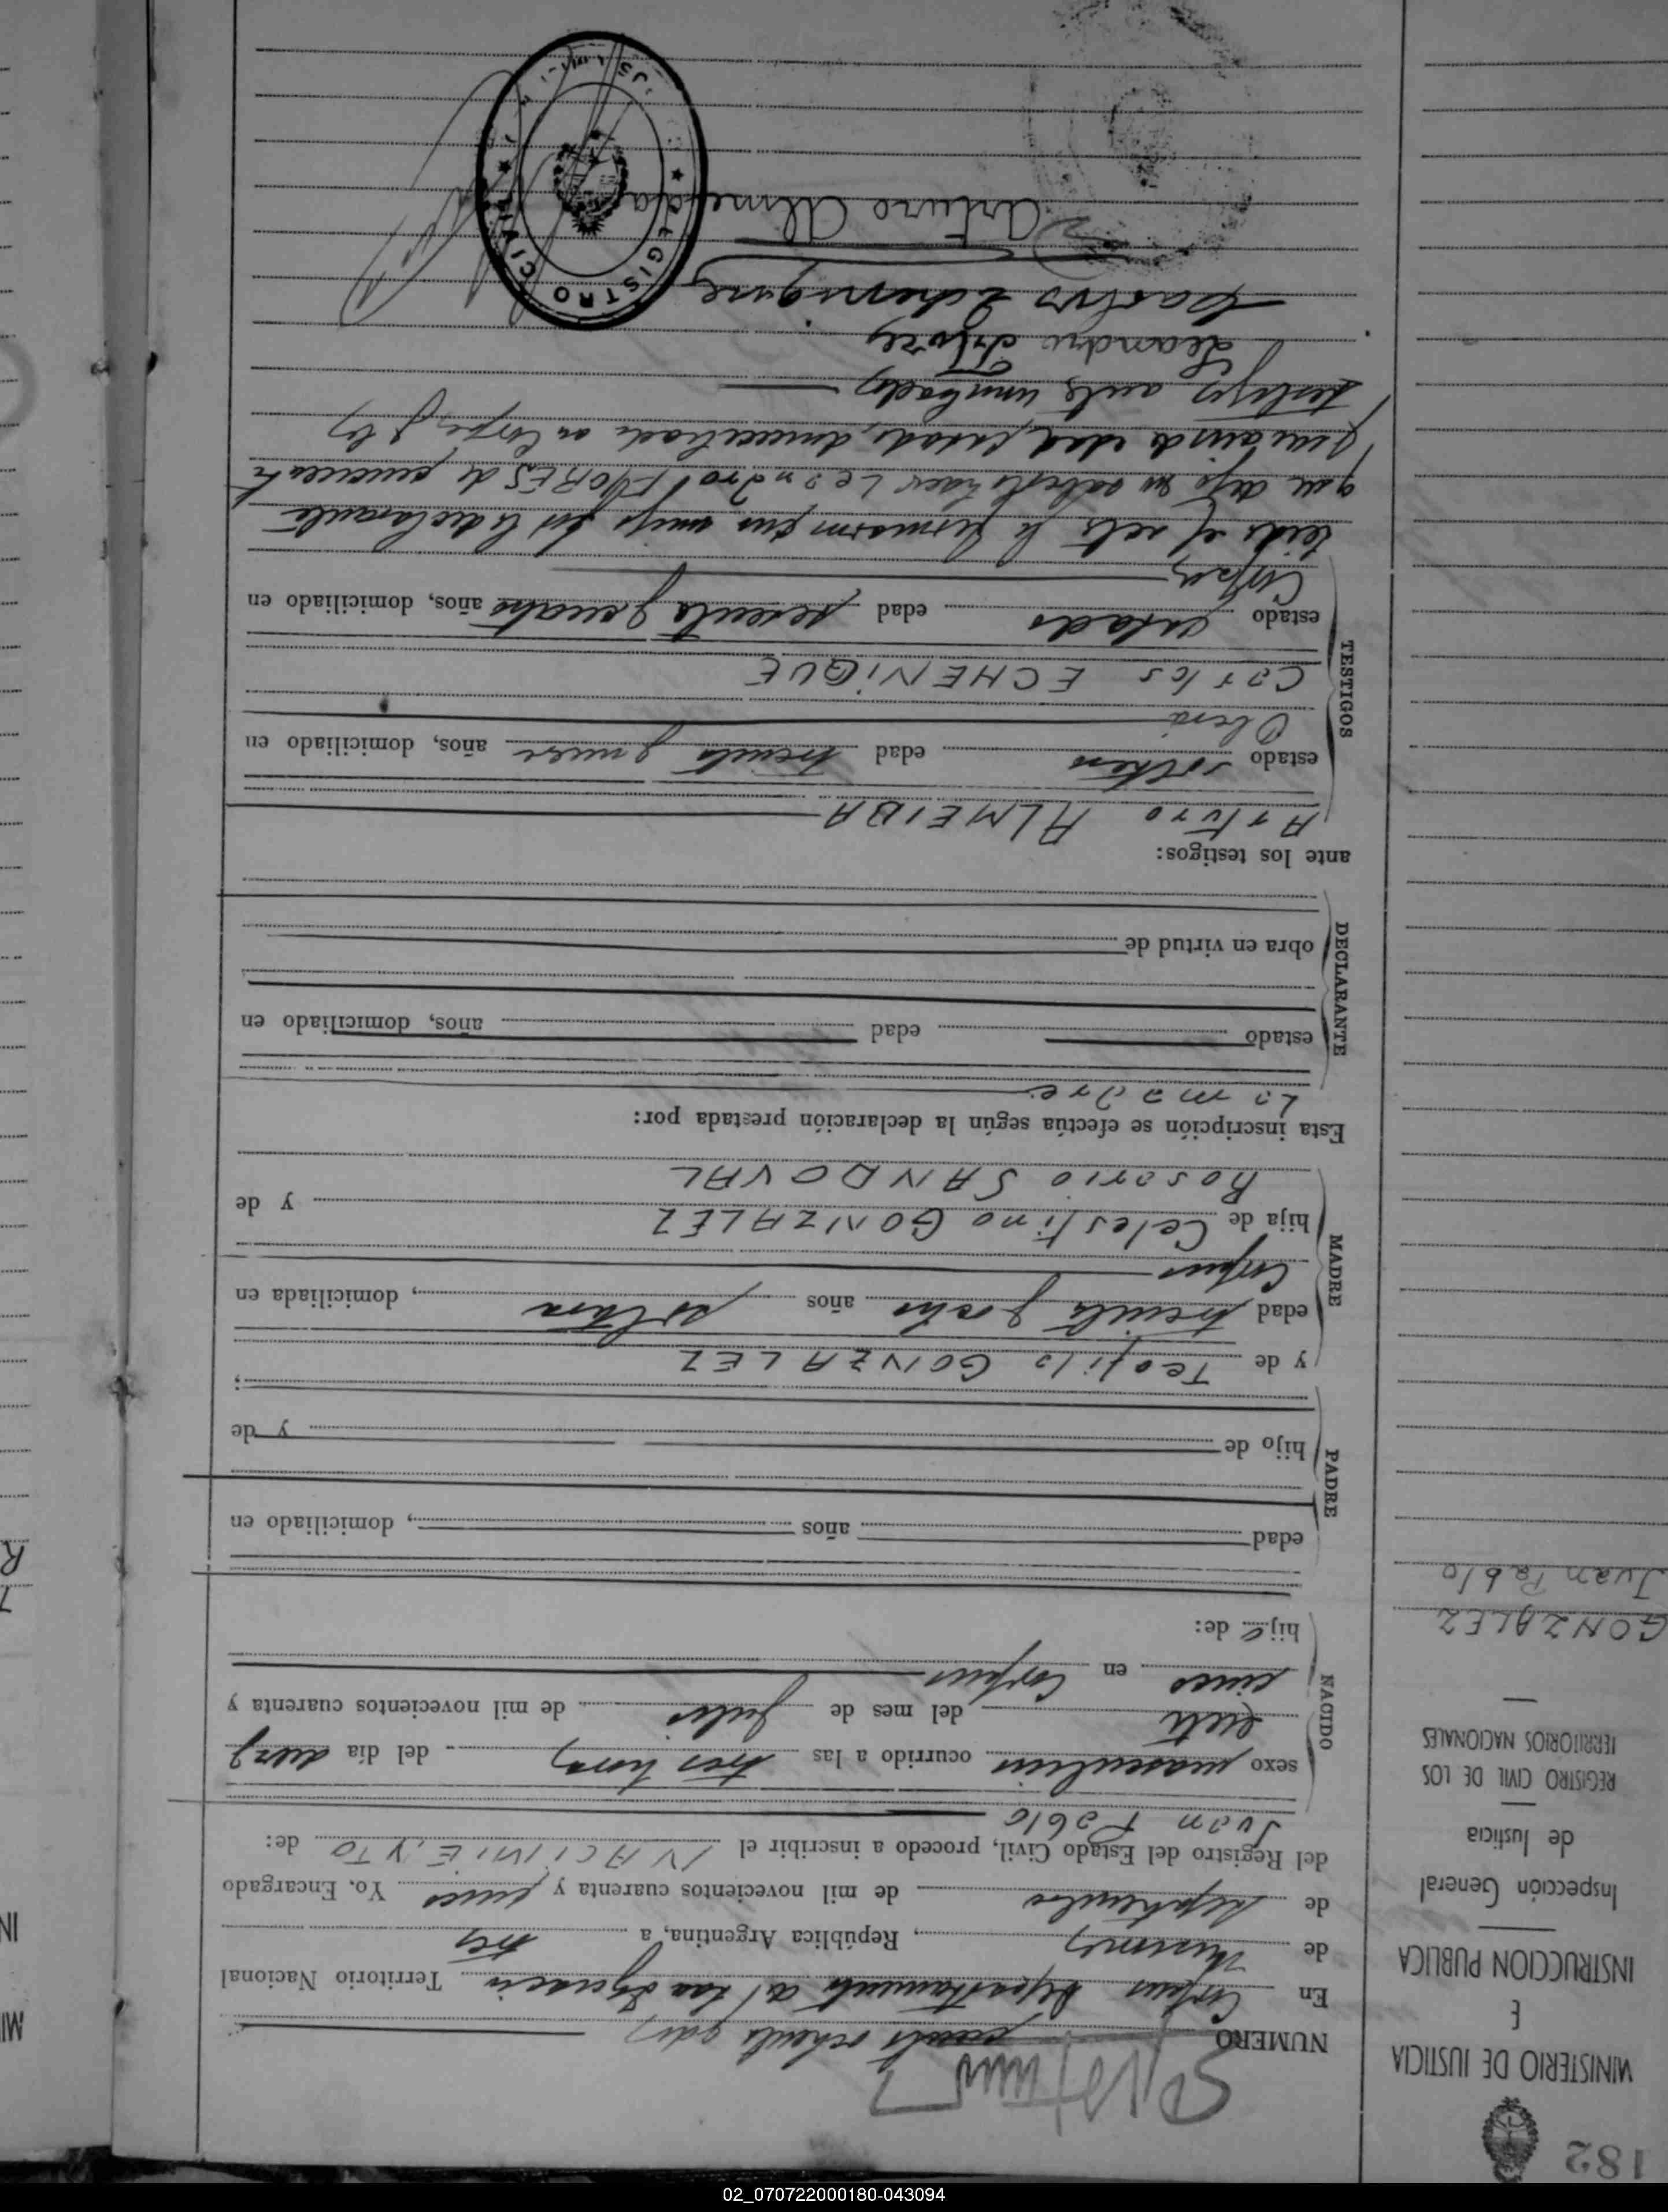 182
MINISTERIO DE JUSTICIA
E
INSTRUCCION PUBLICA
Inspección General
de Justicia
REGISTRO CIVIL DE LOS
TERRITORIOS NACIONALES
GONZALEZ
Juan Pablo
NUMERO ciento ochenta y dos
En Corpus Departamento de San Ignacio Territorio Nacional
de Misiones, República Argentina, a tres
de septiembre de mil novecientos cuarenta y cinco Yo, Encargado
del Registro del Estado Civil, procedo a inscribir el NACIMIENTO de:
Juan Pablo
NACIDO
sexo masculino ocurrido a las tres horas del día diez y
siete del mes de Julio de mil novecientos cuarenta y
cinco en Corpus
hijo de:
PADRE
edad años, domiciliado en
hijo de y de
MADRE
y de Teofila GONZALEZ
edad treinta y ocho años soltera, domiciliada en
Corpus
hija de Celestino GONZALEZ y de
Rosario SANDOVAL
Esta inscripción se efectúa según la declaración prestada por:
La madre
DECLARANTE
estado edad años, domiciliado en
obra en virtud de
ante los testigos:
TESTIGOS
Arturo ALMEIDA
estado soltero edad treinta y nueve años, domiciliado en
Oberá
Carlos ECHENIQUE
estado casado edad sesenta y cuatro años, domiciliado en
Corpus
leida el acta la firmaron por la declarante
que dijo no saber hacer Leandro FLORES de cincuenta
y un años de edad, casado, domiciliado en Corpus y los
testigos ante nombrados
Leandro Flores
Carlos Echenique
Arturo Almeida
REGISTRO CIVIL
02_070722000180-043094